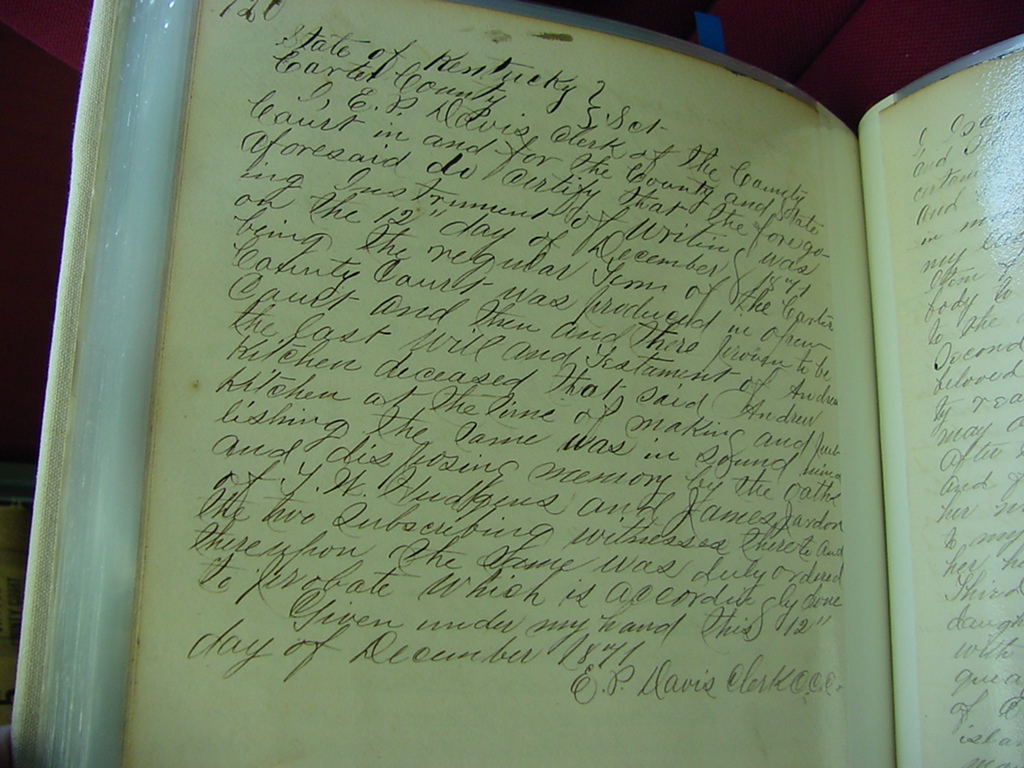 120
State of Kentucky }
Carter County } Sct.
I, E. P. Davis Clerk of the County
Court in and for the County and State
aforesaid do certify that the forego-
ing Instrument of Writing was
on the 12" day of December 1871
being the regular Term of the Carter
County Court was produced in open
Court and then and there proven to be
the last will and Testament of Andrew
Kitchen deceased that said Andrew
Kitchen at the time of making and pub-
lishing the same was in sound mind
and disposing memory by the oaths
of T. W. Hudgins and James Jordon
the two subscribing witnesses thereto and
thereupon the same was duly ordered
to probate which is accordingly done
Given under my hand this 12"
day of December 1871
E. P. Davis Clerk C.C.C.
and
certain
and
in
my
body to
to the
Second
beloved
by
may
after
and
her
to my
her
Third
with
of